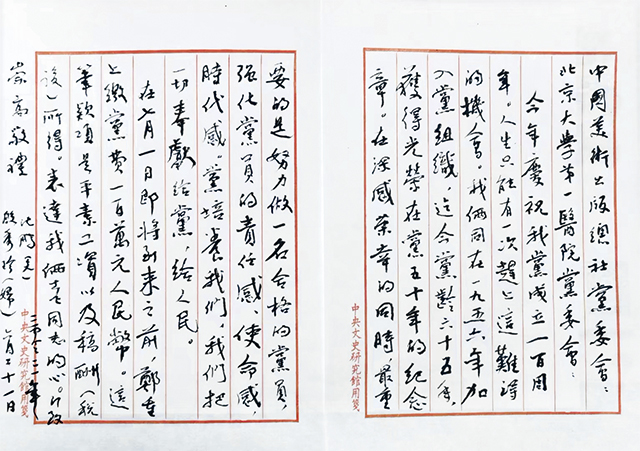 中國美術出版總社黨委會：
北京大學第一醫院黨委會：
今年慶祝我黨成立一百周
年。人生只能有一次趕上這難得
的機會。我俩同在一九五六年加
入黨組織，迄今黨齡六十五年，
獲得光榮在黨五十年的纪念
章。在深感荣幸的同時，最重
中央文史研究館用箋
要的是努力做一名合格的黨員，
强化黨員的責任感、使命感，
時代感。黨培養我們，我們把
一切奉獻给黨，给人民。
在七月一日即將到来之前，鄭重
上繳黨費一百萬元人民幣。這
筆款項是平素工資以及稿酬（税
後）所得。表達我俩老同志的心。此致
崇高敬禮
沈鵬（夫）
殷秀珍（婦）
二〇二一年
六月二十一日
中央文史研究館用箋